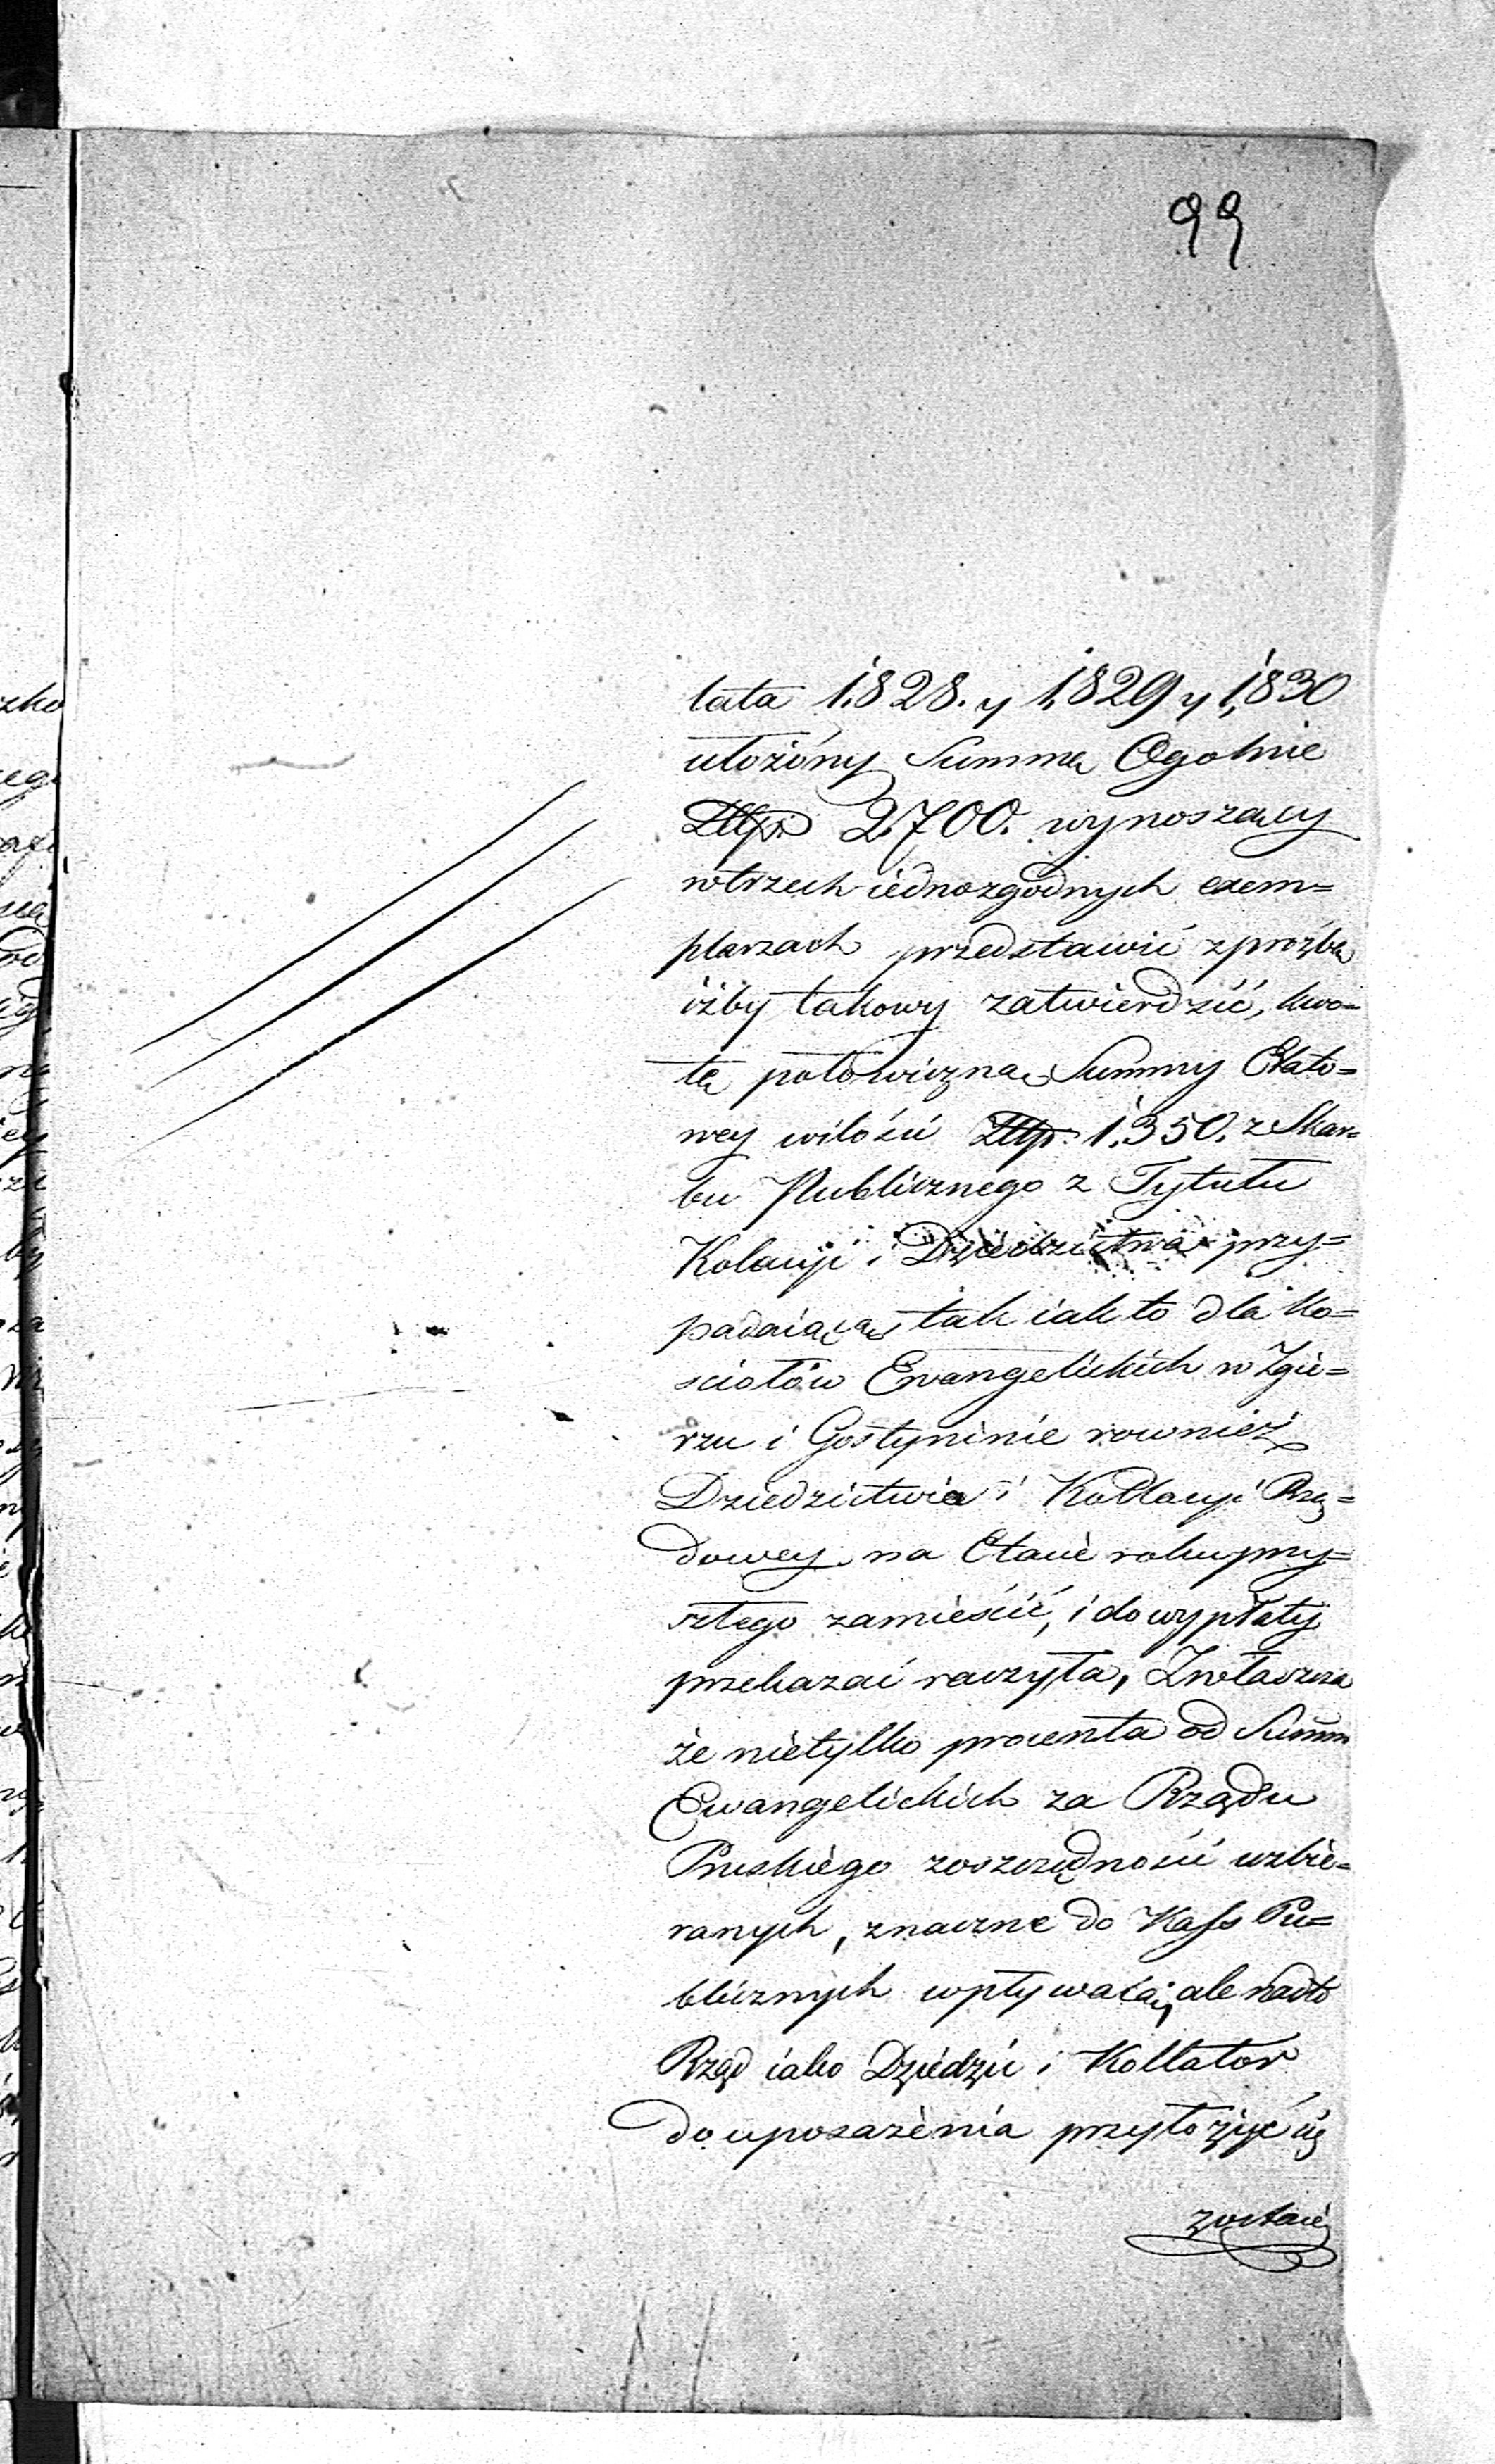 99
lata 1828. y 1829 y 1830
ułożóny Summę Ogolnie
Złłp. 2700. wynoszący
wtrzech iednozgodnych exem=
plarzach przedstawić zproźbą
iżby takowy zatwierdzić, kwo=
tę połowiczną Summy Etato=
wey wilości Złłp. 1350. z Skar=
bu Publicznego z Tytułu
Kolacyi i Dziedzictwa przy=
padaiącą, tak iak to dla Ko=
sciołów Ewangelickich w Zgie=
rzu i Gostyninie rownież
Dziedzictwa i Kollacyi Rzą=
dowey na Etacie roku przy=
szłego zamieścić, i do wypłaty
przekazać raczyła, Zwłaszcza
że nietylko procenta od Summ
Ewangelickich za Rządu
Pruskiego zoszczędności uzbie=
ranych, znaczne do Kass Pu=
blicznych wpływaią, ale nadto
Rząd iako Dziedzic i Kollator
do uposażenia przyłożyć się